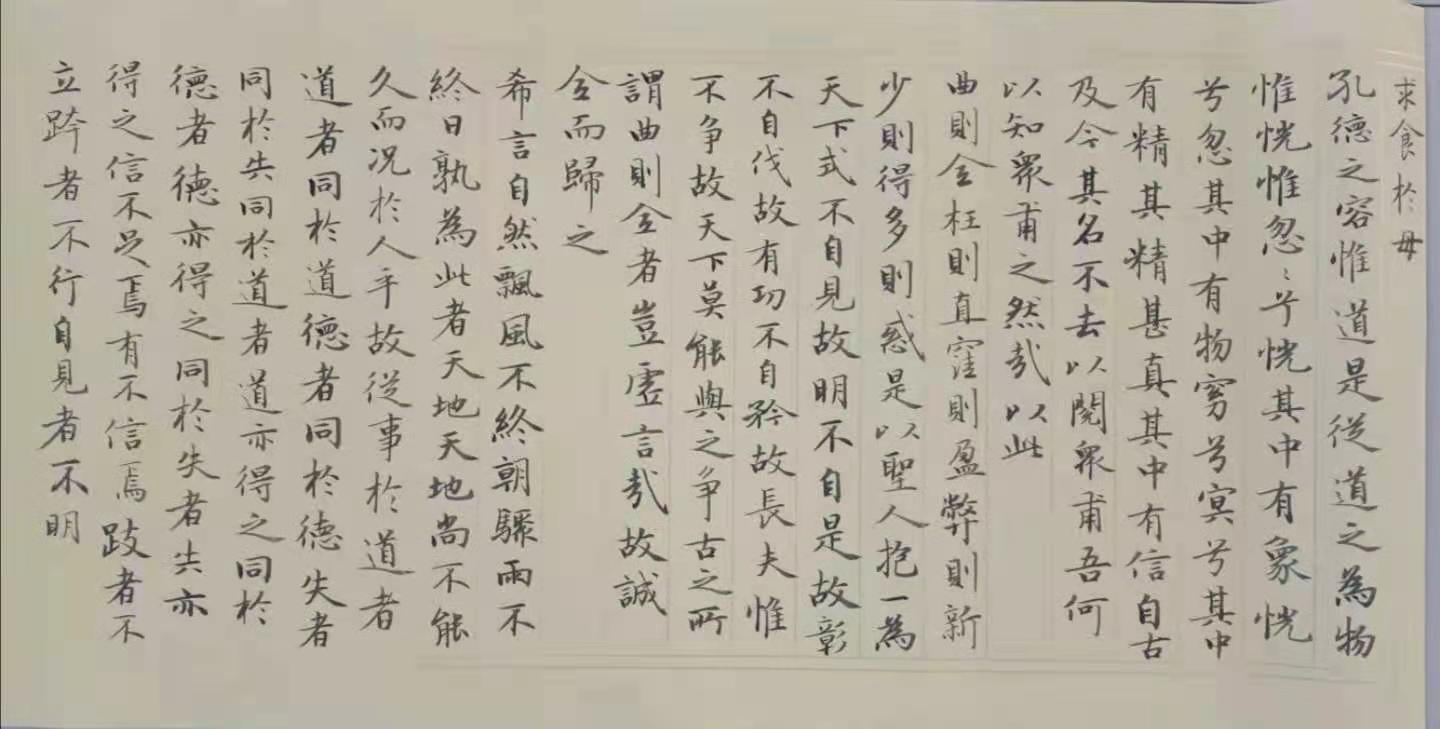 求食於母
孔德之容惟道是従道之為物
惟恍惟忽〻兮恍其中有象恍
兮忽其中有物窈兮冥兮其中
有精其精甚真其中有信自古
及今其名不去以閱衆甫吾何
以知衆甫之然㢤以此
曲則全枉則直窪則盈弊則新
少則得多則惑是以聖人抱一為
天下式不自見故明不自是故彰
不自伐故有功不自矜故長夫惟
不争故天下莫能與之争古之所
謂曲則全者豈虛言㢤故誠
全而歸之
希言自然飄風不終朝驟雨不
終日孰為此者天地天地尚不能
久而况於人乎故従事於道者
道者同於道德者同於德失者
同於失同於道者道亦得之同於
德者德亦得之同於失者失亦
得之信不足焉有不信焉跂者不
立跨者不行自見者不明